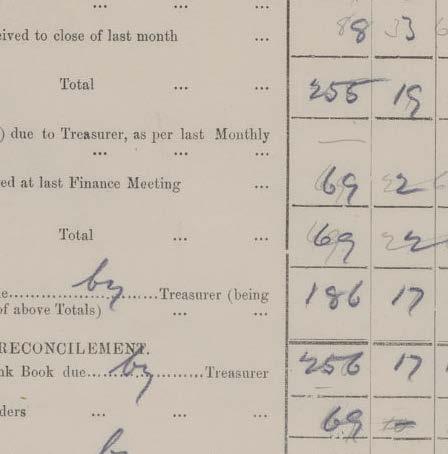 ... ... ...
eived to close of last month ... 88 33 6
Total ... ... 255 19
) due to Treasurer, as per last Monthly
... ... ... —
ed at last Finance Meeting ... 69 2
Total ... ... 69 2
e..............by........Treasurer (being
of above Totals) ... ... 186 17
RECONCILEMENT.
nk Book due......by..........Treasurer 256 17
ders ... ... ... 69 -
by